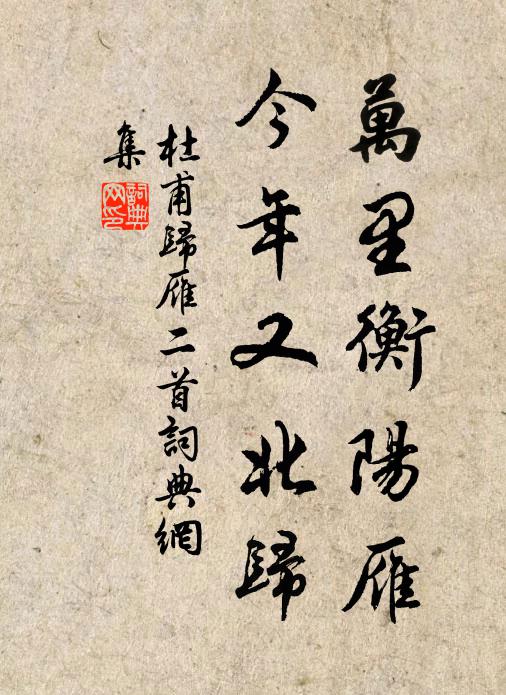 萬里衡陽雁
今年又北歸
杜甫歸雁二首詞典網
集
詞典
网印